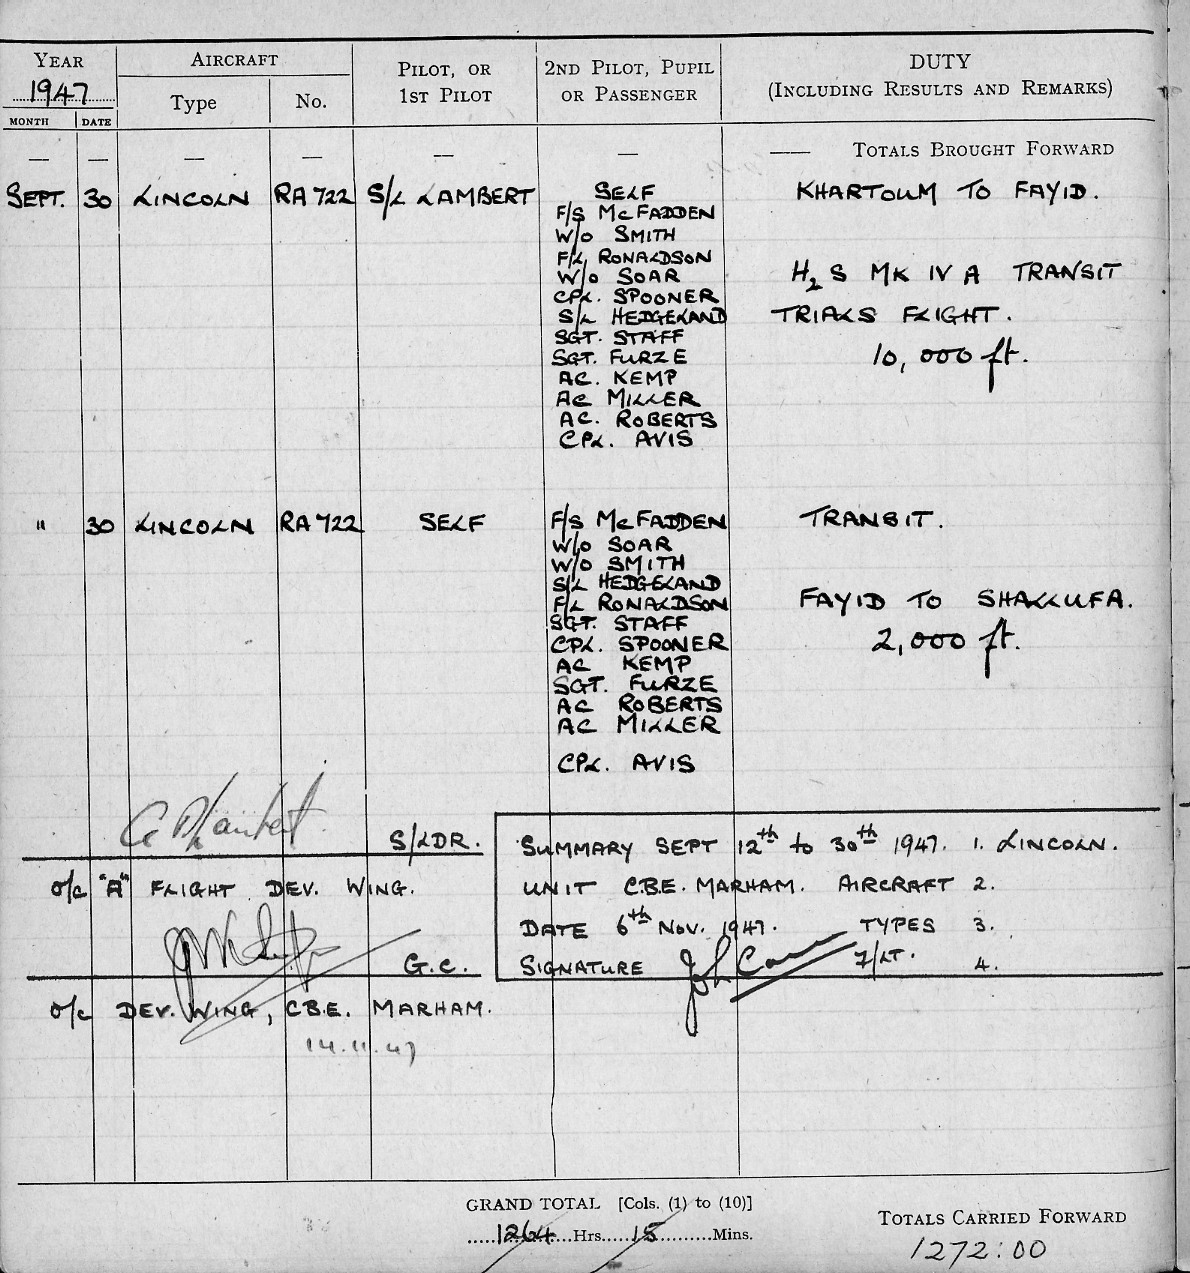 YEAR 1947 AIRCRAFT PILOT, OR 1ST PILOT 2ND PILOT, PUPIL OR PASSENGER DUTY (INCLUDING RESULTS AND REMARKS)
MONTH DATE Type No.
— — — — — — —— TOTALS BROUGHT FORWARD
SEPT. 30 LINCOLN RA722 S/L LAMBERT SELF KHARTOUM TO FAYID.
F/S McFADDEN
W/O SMITH
F/L RONALDSON
W/O SOAR H2S MK IV A TRANSIT
CPL. SPOONER
S/L HEDGELAND TRIALS FLIGHT.
SGT. STAFF
SGT. FURZE 10,000 ft.
AC. KEMP
AC MILLER
AC. ROBERTS
CPL. AVIS
" 30 LINCOLN RA722 SELF F/S McFADDEN TRANSIT.
W/O SOAR
W/O SMITH
S/L HEDGELAND
F/L RONALDSON FAYID TO SHALLUFA.
SGT. STAFF
CPL. SPOONER 2,000 ft.
AC KEMP
SGT. FURZE
AC ROBERTS
AC MILLER
CPL. AVIS
Lambert S/LDR.
O/C "A" FLIGHT DEV. WING.
G.C.
O/C DEV. WING, C.B.E. MARHAM.
14.11.47
SUMMARY SEPT 12th to 30th 1947. 1. LINCOLN.
UNIT C.B.E. MARHAM. AIRCRAFT 2.
DATE 6th Nov. 1947. TYPES 3.
SIGNATURE F/LT. 4.
GRAND TOTAL [Cols. (1) to (10)]
1264 Hrs. 15 Mins.
TOTALS CARRIED FORWARD
1272:00